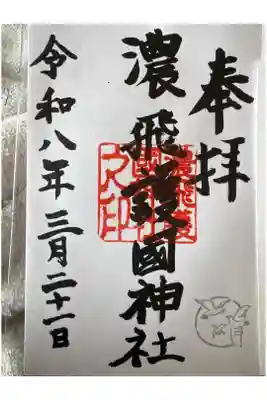 奉拝
濃飛護國神社
令和八年三月二十一日